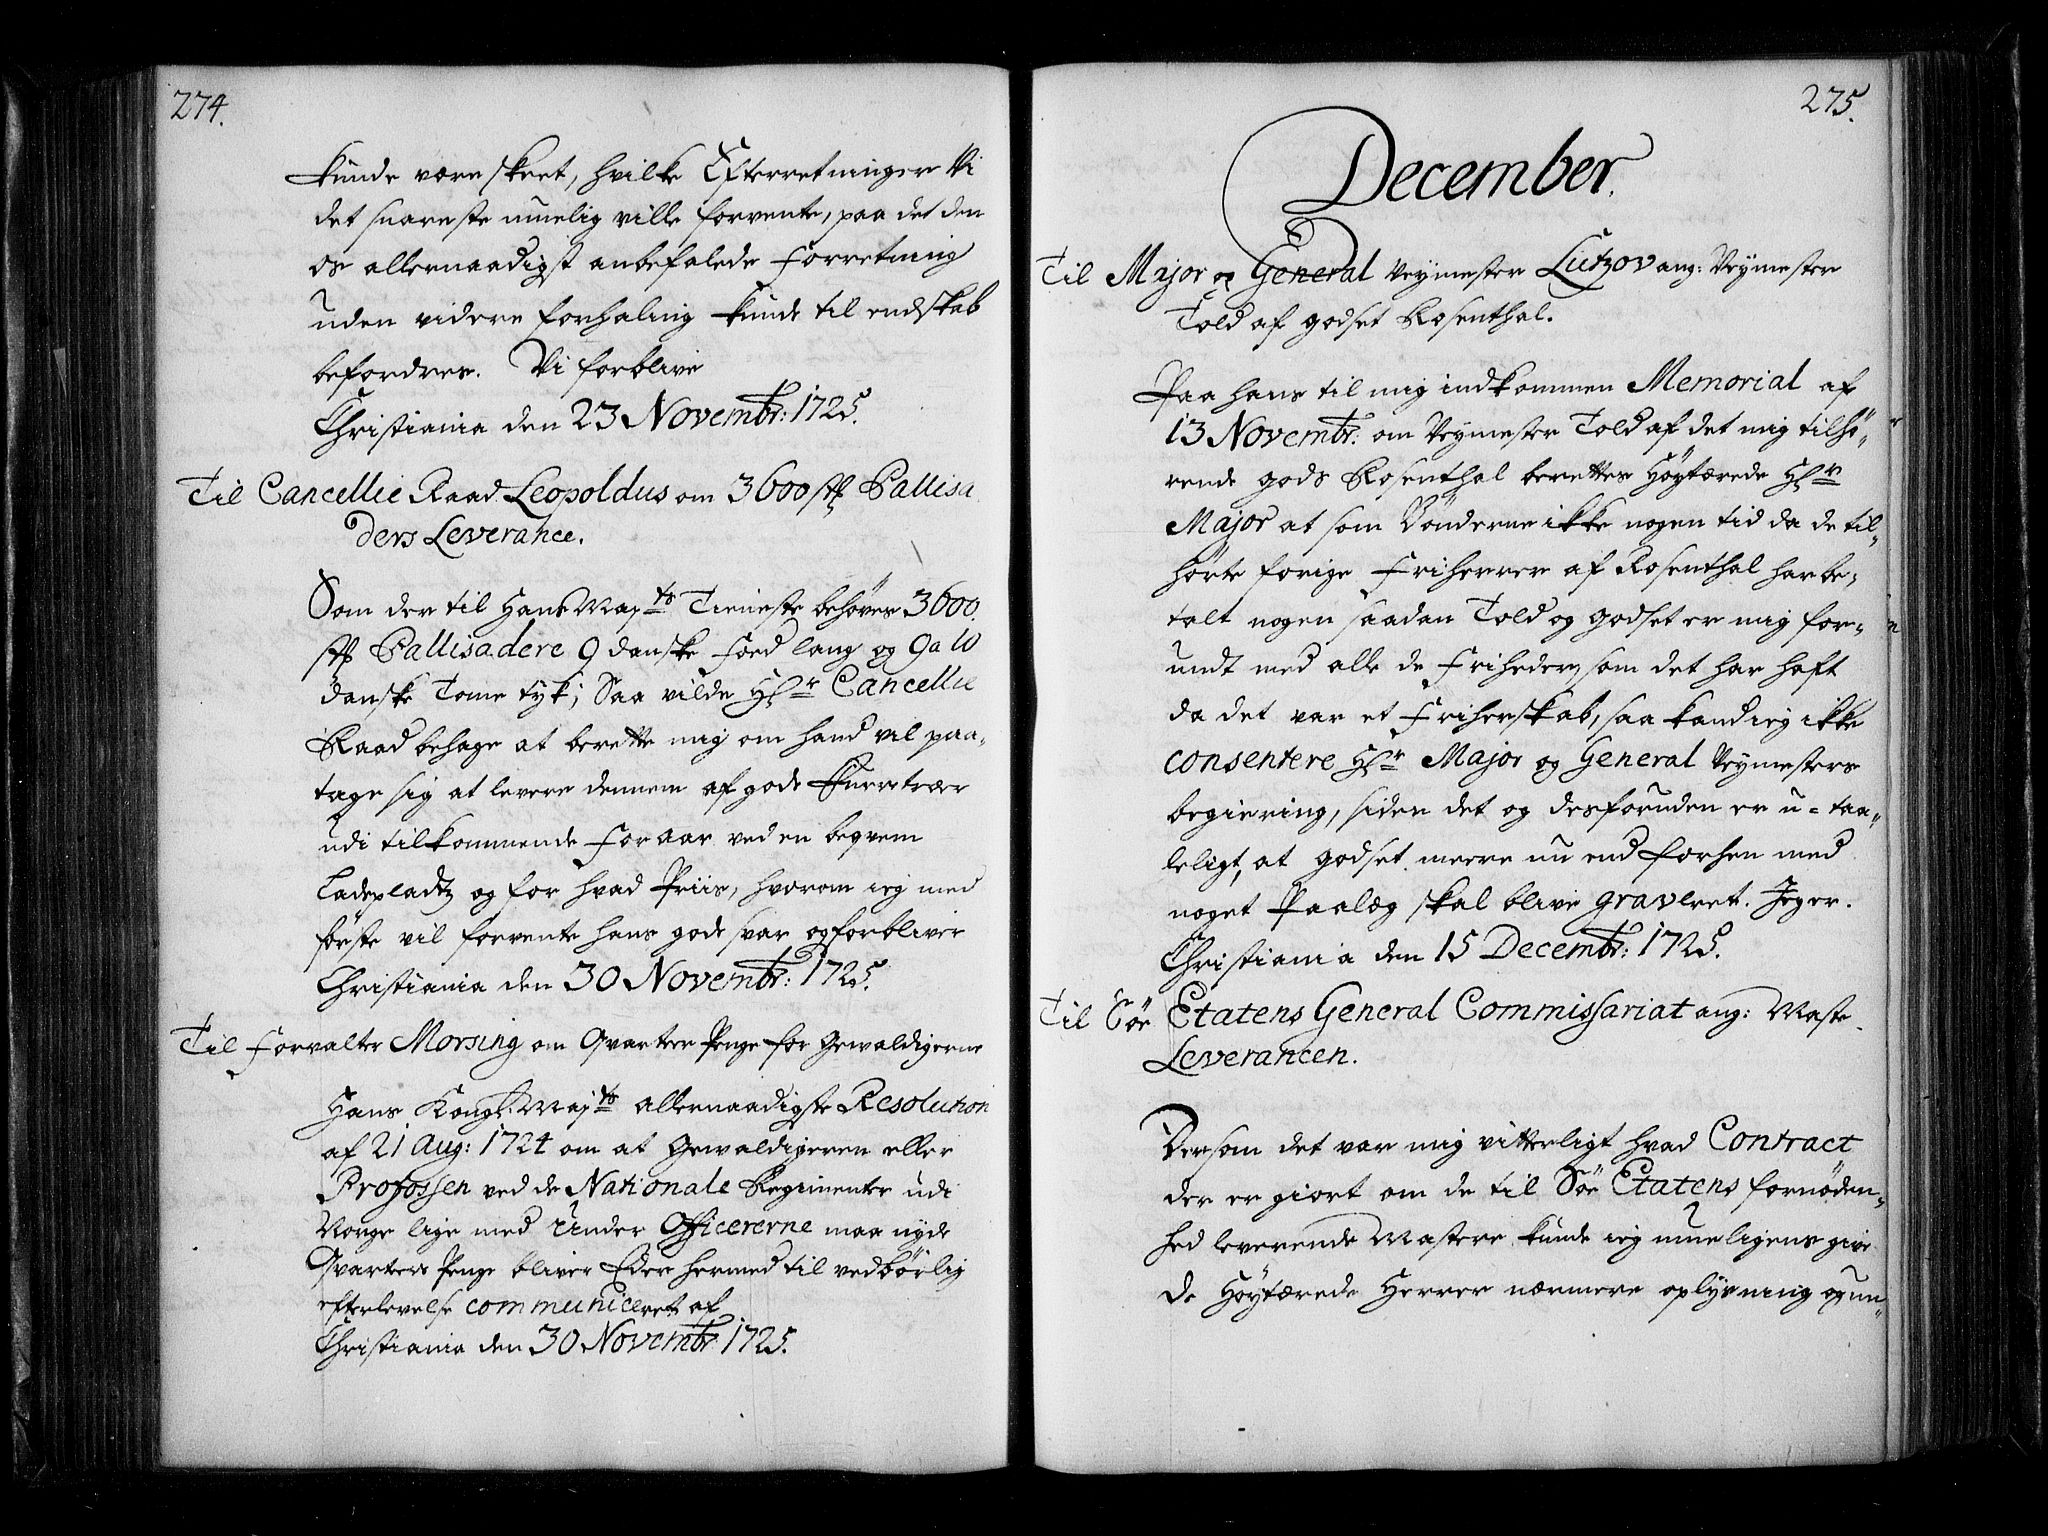 274.
kunde være skeet, hvilke Efterretninger Vi
det snareste muelig ville forvente, paa det den
os allernaadigst anbefalede Forretning
uden videre forhaling kunde til endskab
befordres. Vi forblive
Christiania den 23 Novembr: 1725.
Til Cancellie Raad Leopoldus om 3600 stk Pallisa
ders Leverance.
Som der til Hans Majts Tieneste behöves 3600.
stk Pallisadere 9 danske Foed lang og 9 a 10
danske Tome tyk; Saa vilde Hr Cancellie
Raad behage at berette mig om hand vil paa-
tage sig at levere dennem af gode Furretræer
udi tilkommende Foraar ved en beqvem
Ladepladtz og for hvad Priis, hvorom ieg med
förste vil forvente hans gode svar og forbliver
Christiania den 30 Novembr: 1725.
Til Forvalter Morsing om Qvarteer Penge for Gewaldigerne
Hans Kongl: Majts allernaadigste Resolution
af 21 Aug: 1724 om at Gewaldigeren eller
Profossen ved de Nationale Regimenter udi
Norge lige med Under Officererne maa nyde
Qvarteers Penge bliver Eder hermed til vedbörlig
efterlevelse communiceret af
Christiania den 30 Novembr 1725.
275.
December.
Til Major og General Veymester Lutzov ang: Veymester
Told af godset Rosenthal.
Paa hans til mig indkommen Memorial af
13 Novembr: om Veymester Told af det mig tilhö-
rende gods Rosenthal berettes Höytærede Hr
Major at som Bönderne ikke nogen tid da de til-
hörte forige Friherrer af Rosenthal har be-
talt nogen saadan Told og godset er mig for-
undt med alle de Friheder, som det har haft
da det var et Friherskab, saa kand ieg ikke
consentere Hr Major og General Veymesters
begiering, siden det og desforuden er u-taa-
leligt, at godset meere nu end forhen med
noget Paalæg skal blive graveret. Jeg er.
Christiania den 15 Decembr: 1725.
Til Söe Etatens General Commissariat ang: Maste
Leverancen.
Dersom det var mig vitterligt hvad Contract
der er giort om de til Söe Etatens fornöden-
hed leverende Mastere kunde ieg mueligens give
de Höytærede Herrer nærmere oplysning og un-